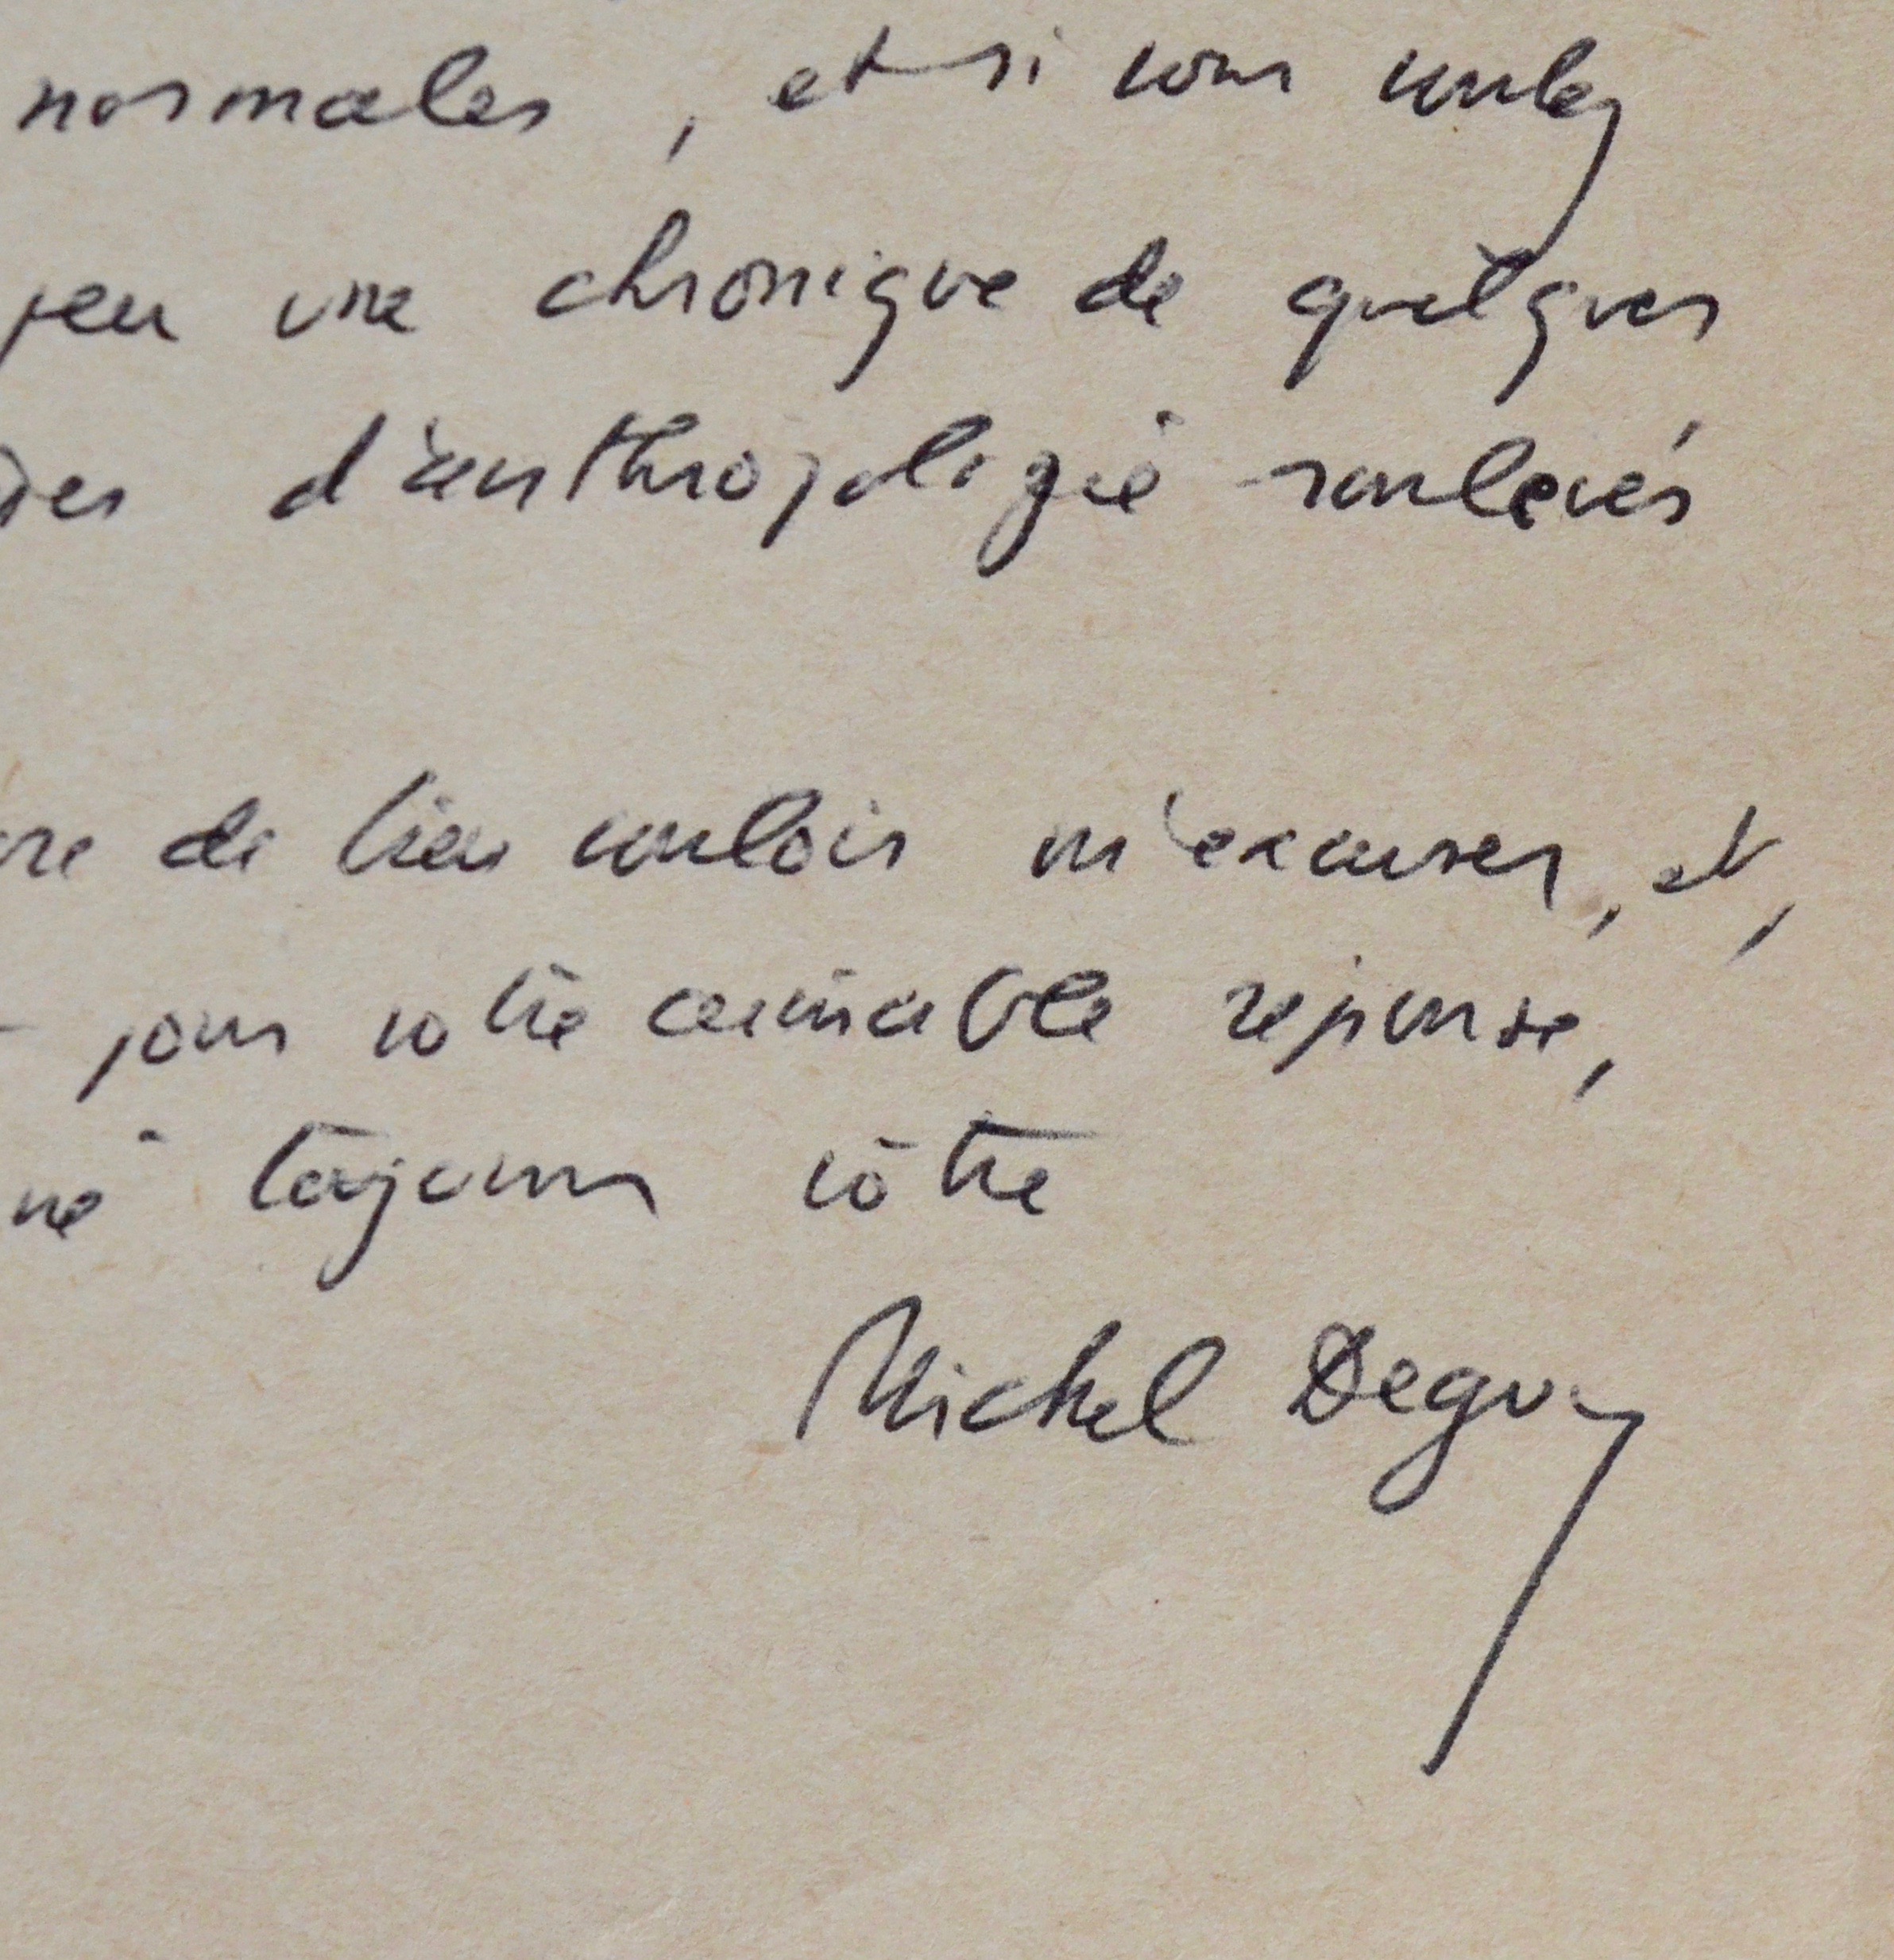 normales, et si vous voulez
peu une chronique de quelques
d'anthropologie soulevés
de bien vouloir m'excuser, et,
pour votre aimable réponse,
toujours vôtre
Michel Deguy